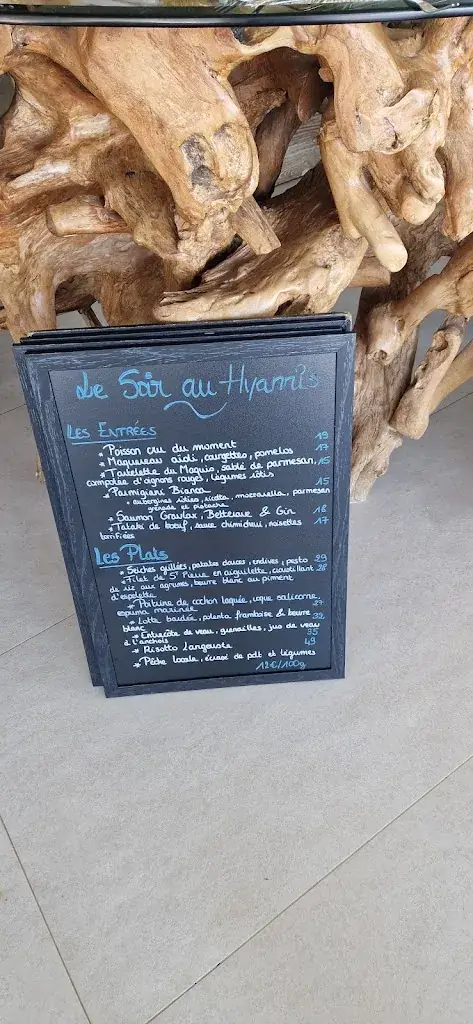 Le Soir au Hyannis
Les Entrées
* Poisson cru du moment 19
* Maquereau aioli, courgettes, pomelos 17
* Tartelette du Maquis, sablé de parmesan, 15
compotée d'oignons rouges, légumes rôtis
* Parmigiani Bianca 15
aubergines rôties, ricotta, mozzarella, parmesan
grenade et pistache
* Saumon Gravlax, Betterave & Gin 18
* Tataki de boeuf, sauce chimichui, noisettes 17
torrifiées
Les Plats
* Seiches grillées, patates douces, endives, pesto 29
* Filet de St Pierre en aiguillette, croustillant 28
de riz aux agrumes, beurre blanc au piment
d'espelette
* Poitrine de cochon laquée, coque salicorne,
espuma marinée 27
* Lotte bardée, polenta, framboise & beurre 32
blanc
* Entrecôte de veau, grenailles, jus de veau
à l'anchois 35
* Risotto Langouste 49
* Pêche locale, écrasé de pdt et légumes
12€/100g